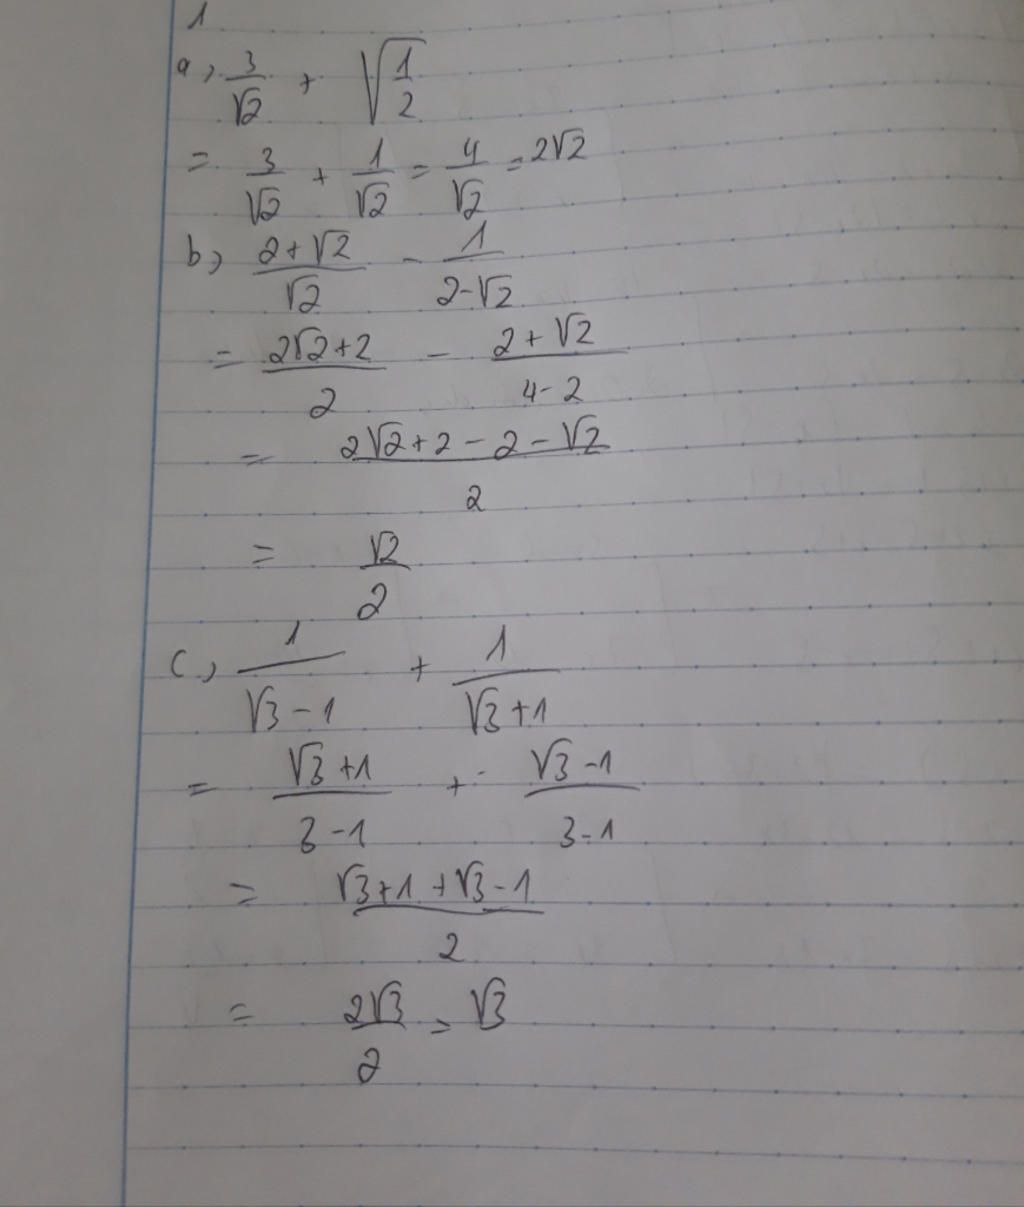 1
a, 3/√2 + √(1/2)
= 3/√2 + 1/√2 = 4/√2 = 2√2
b, (2+√2)/√2 - 1/(2-√2)
= (2√2+2)/2 - (2+√2)/(4-2)
= (2√2+2-2-√2)/2
= √2/2
c, 1/(√3-1) + 1/(√3+1)
= (√3+1)/(3-1) + (√3-1)/(3-1)
= (√3+1+√3-1)/2
= 2√3/2 = √3